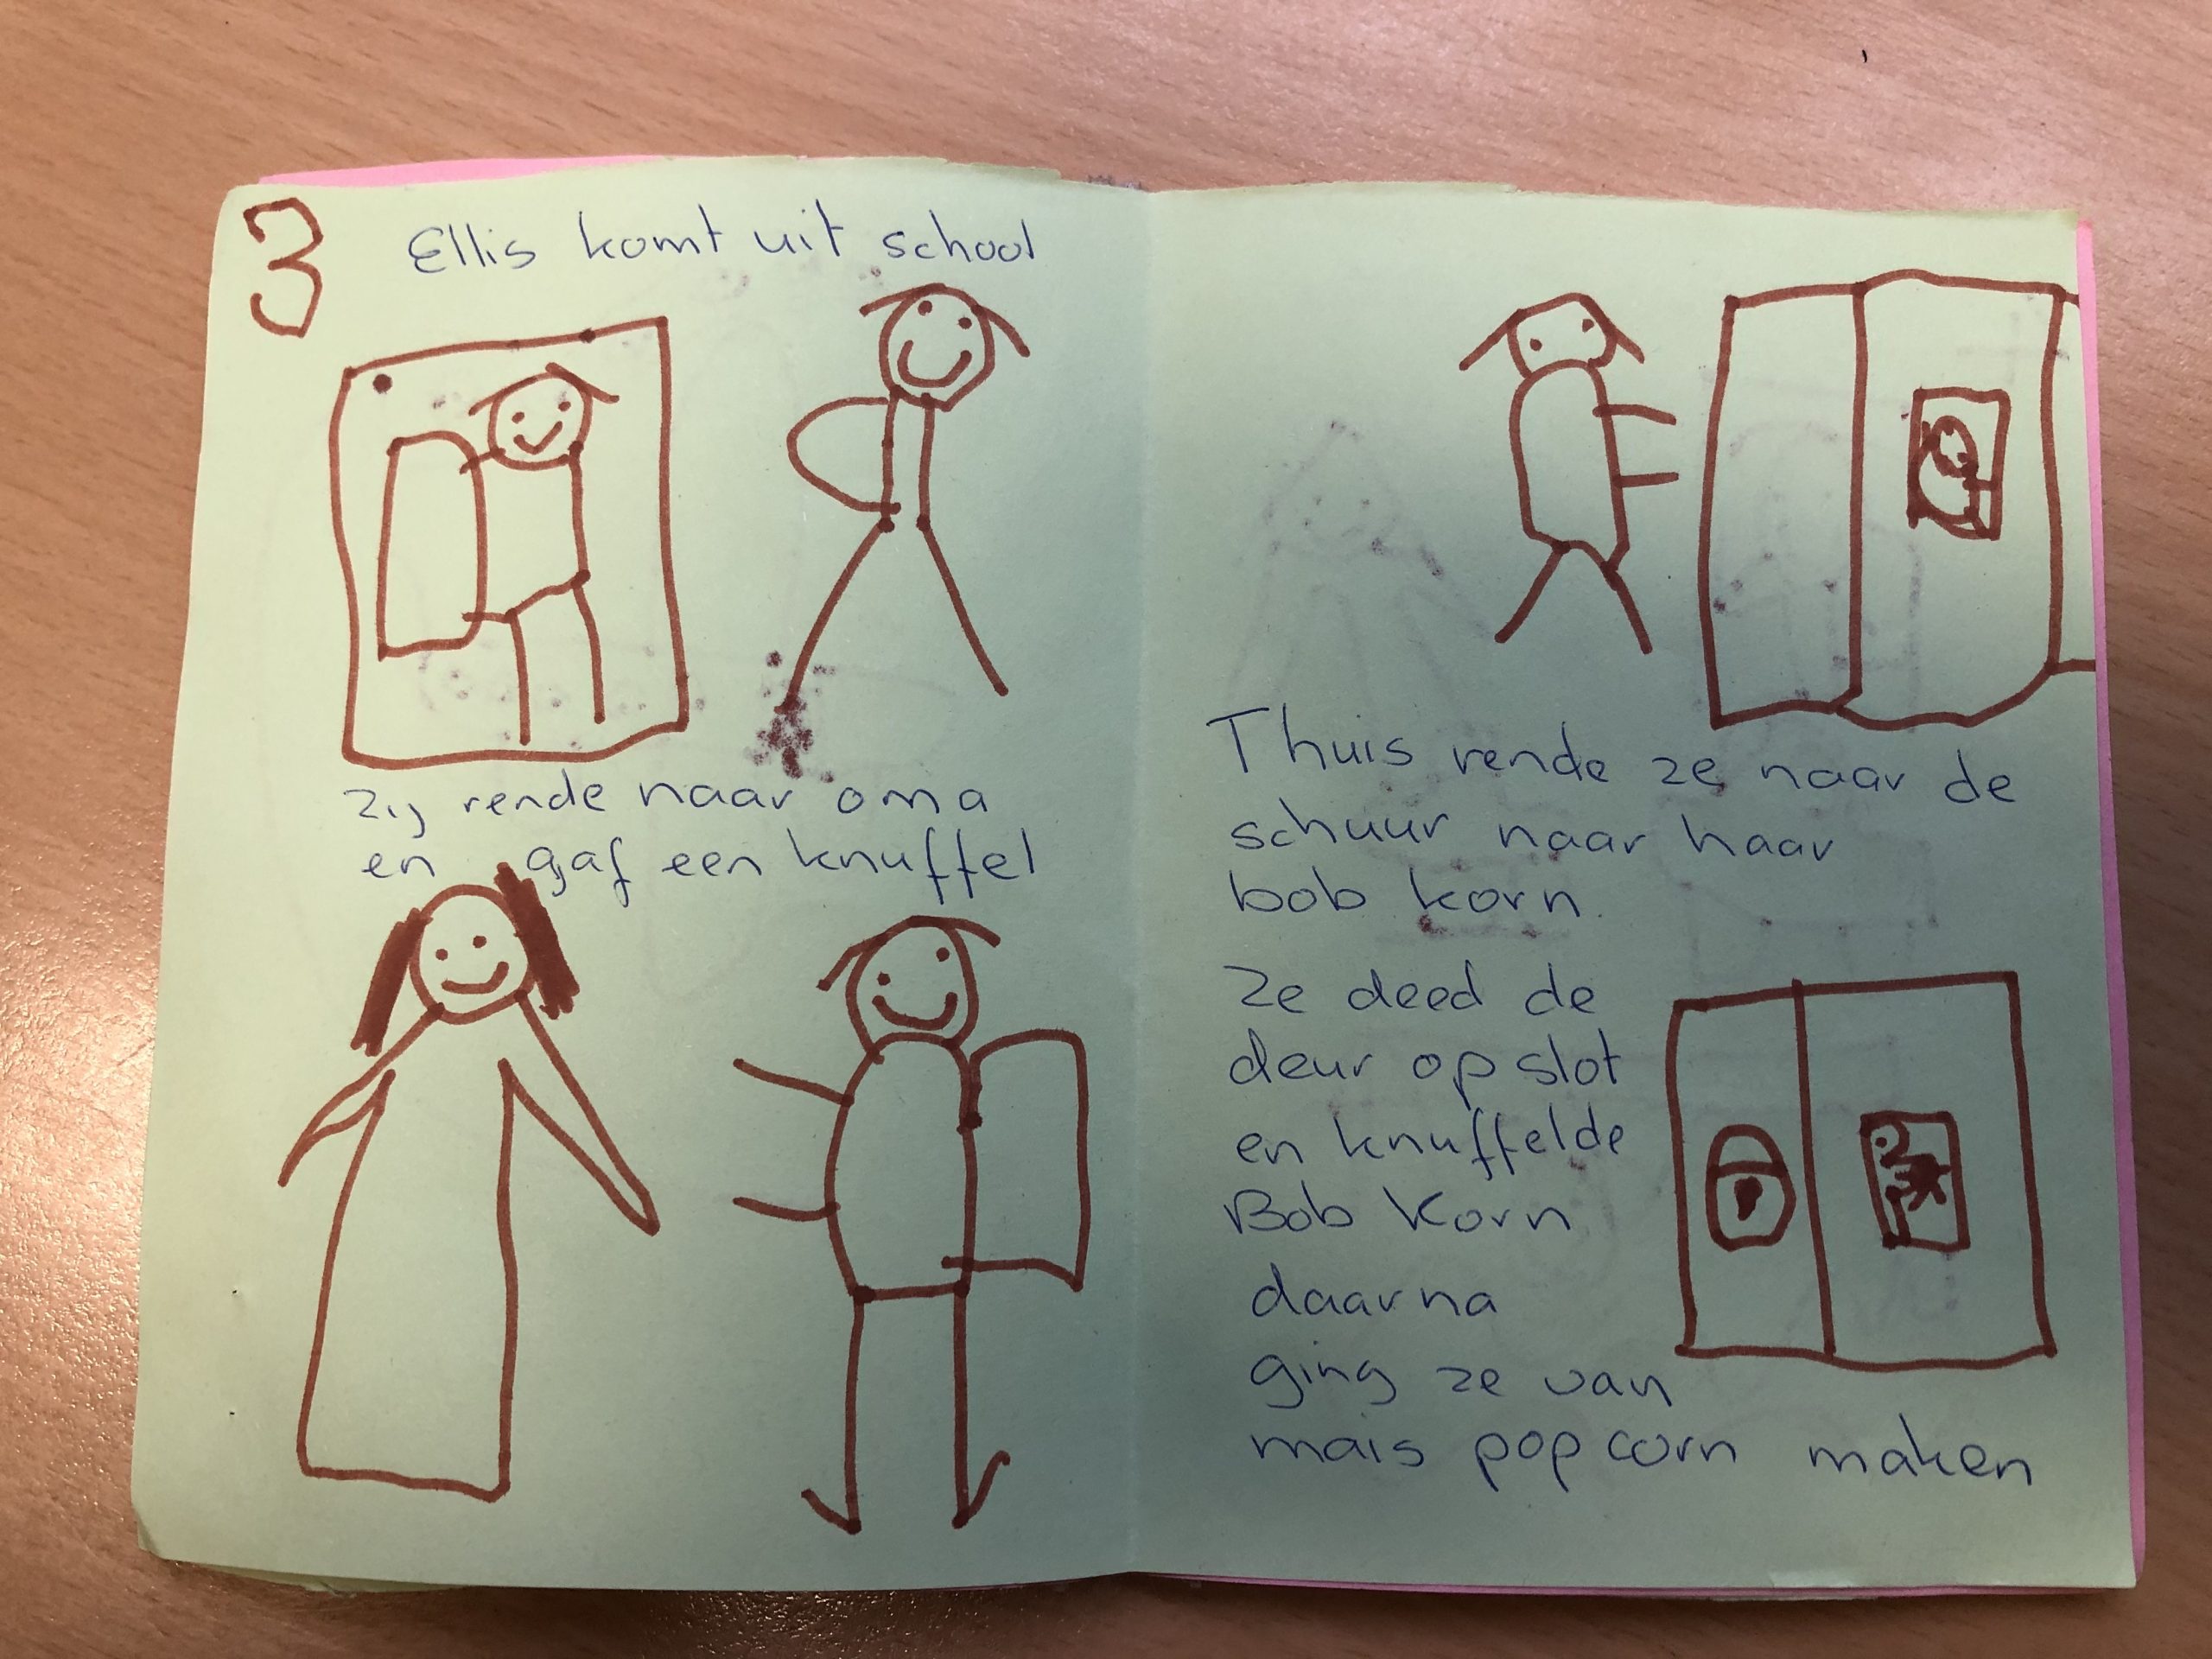 3
Ellis komt uit school
zij rende naar oma
en gaf een knuffel
Thuis rende ze naar de
schuur naar haar
bob korn.
Ze deed de
deur op slot
en knuffelde
Bob Korn
daarna
ging ze van
mais popcorn maken